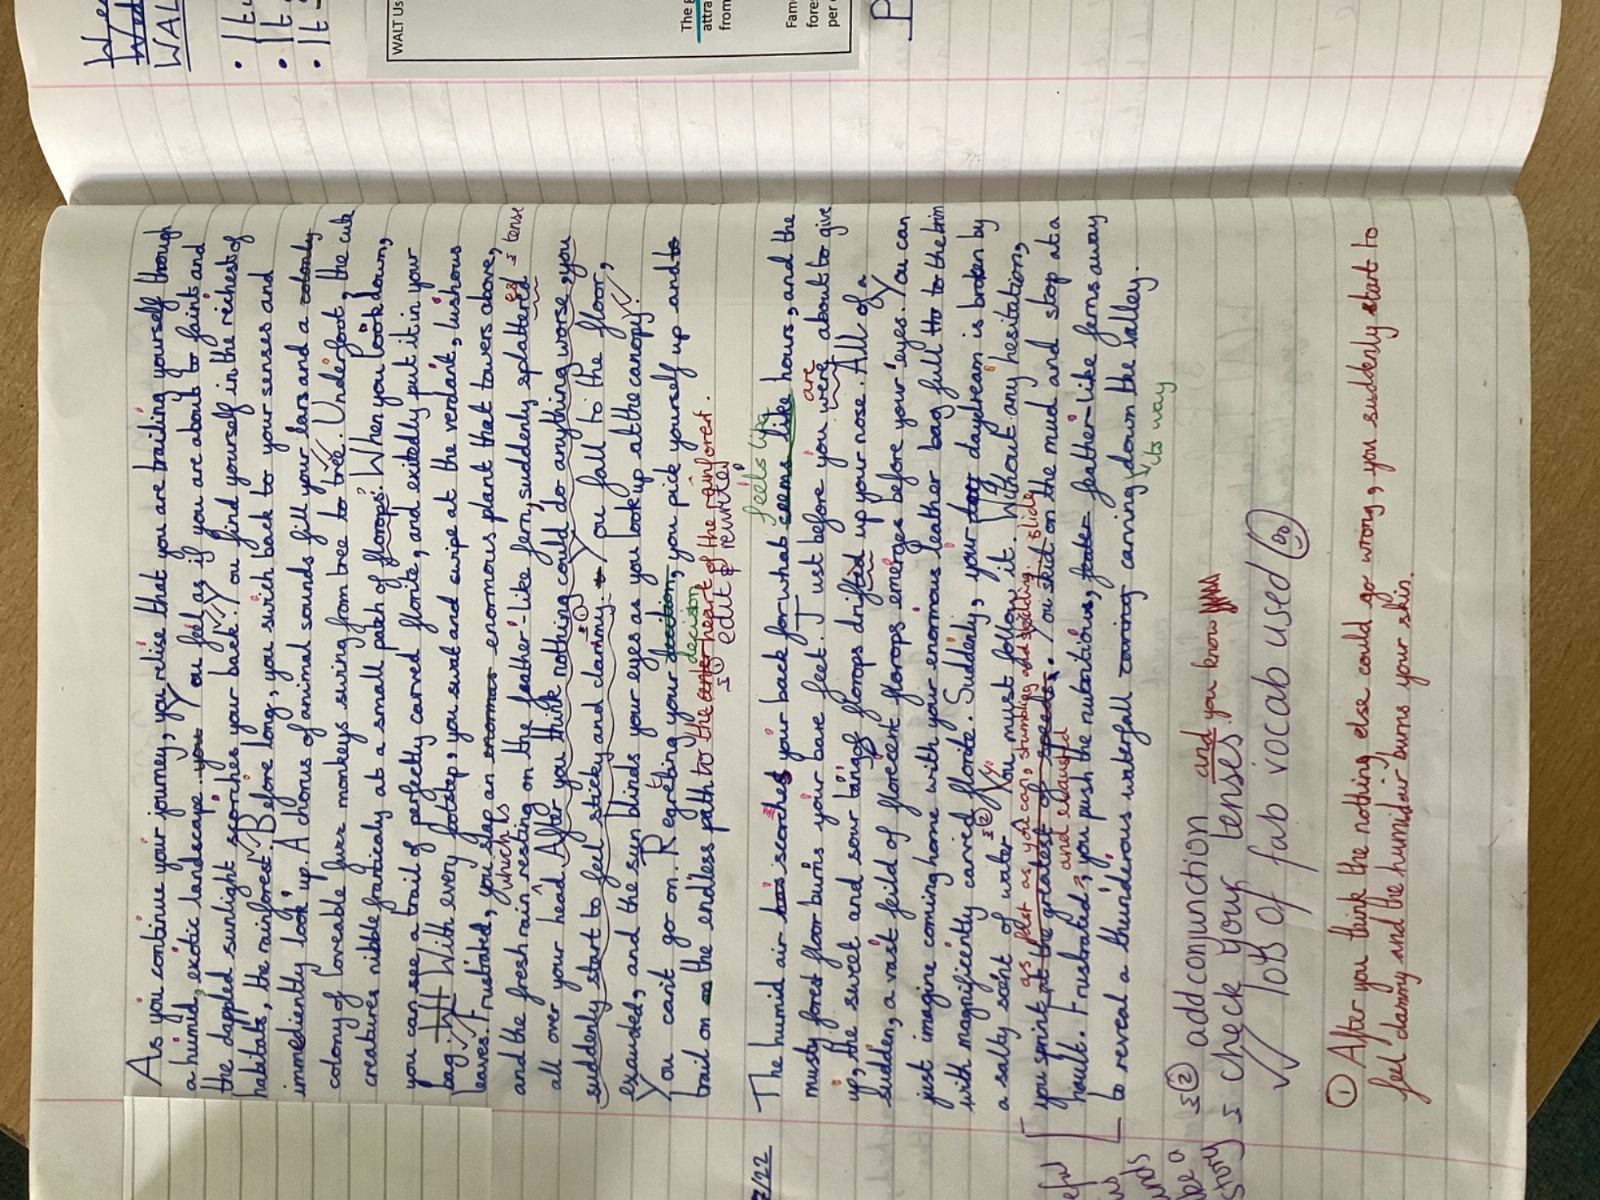 As you continue your journey, you relise that you are trailing yourself though
a humid, exotic landscape. You feel as if you are about to faint and
the dappled sunlight scorches your back. You find yourself in the richest of
habitats, the rainforest. Before long, you swich back to your senses and
immediently look up. A chorus of animal sounds fill your ears and a
colony of loveable furr monkeys swing from tree to tree. Underfoot, the cute
creatures nibble franticaly at a small patch of florops. When you look down,
you can see a trail of perfectly carved florite, and exitedly put it in your
bag. With every footstep, you swat and swipe at the verdant, lushous
leaves. Frustrated, you slap an enormous plant that towers above,
which is
and the fresh rain resting on the feather-like fern, suddenly splattered
es
tense
all over your head. After you think nothing could do anything worse, you
①
suddenly start to feel sticky and dammy. You fall to the floor,
excausted, and the sun blinds your eyes as you look up at the canopy.
You can't go on. Regretting your decision, you pick yourself up and
decision
trail on the endless path to the heart of the rainforest.
① edit & rewrite
feels like
The humid air scorches your back for what seems like hours, and the
are
musty forest floor burns your bare feet. Just before you were about to give
up, the sweet and sour tang of florops drifted up your nose. All of a
sudden, a vast feild of florecent florops emerges before your eyes. You can
just imagine coming home with your enormous leather bag full to the brim
with magnificently carvied florate. Suddenly, your daydream is broken by
a salty scent of water. You must follow it. Without any hesitation,
②
as fast as you can, stumbling and skidding. slide
you sprint at the greatest of speeds. You skid on the mud and stop at a
and exausted
hault. Frustrated, you push the nutritious, feather-like ferns away
to reveal a thunderous waterfall carving down the valley.
its way
② add conjunction and you know
check your tenses.
lots of fab vocab used
① After you think the nothing else could go wrong, you suddenly start to
feel dammy and the humid air burns your skin.
7/22
be a
story
WALT Us
The
attra
from
Fam
fore
per
WAL
• It
• It
• It
P